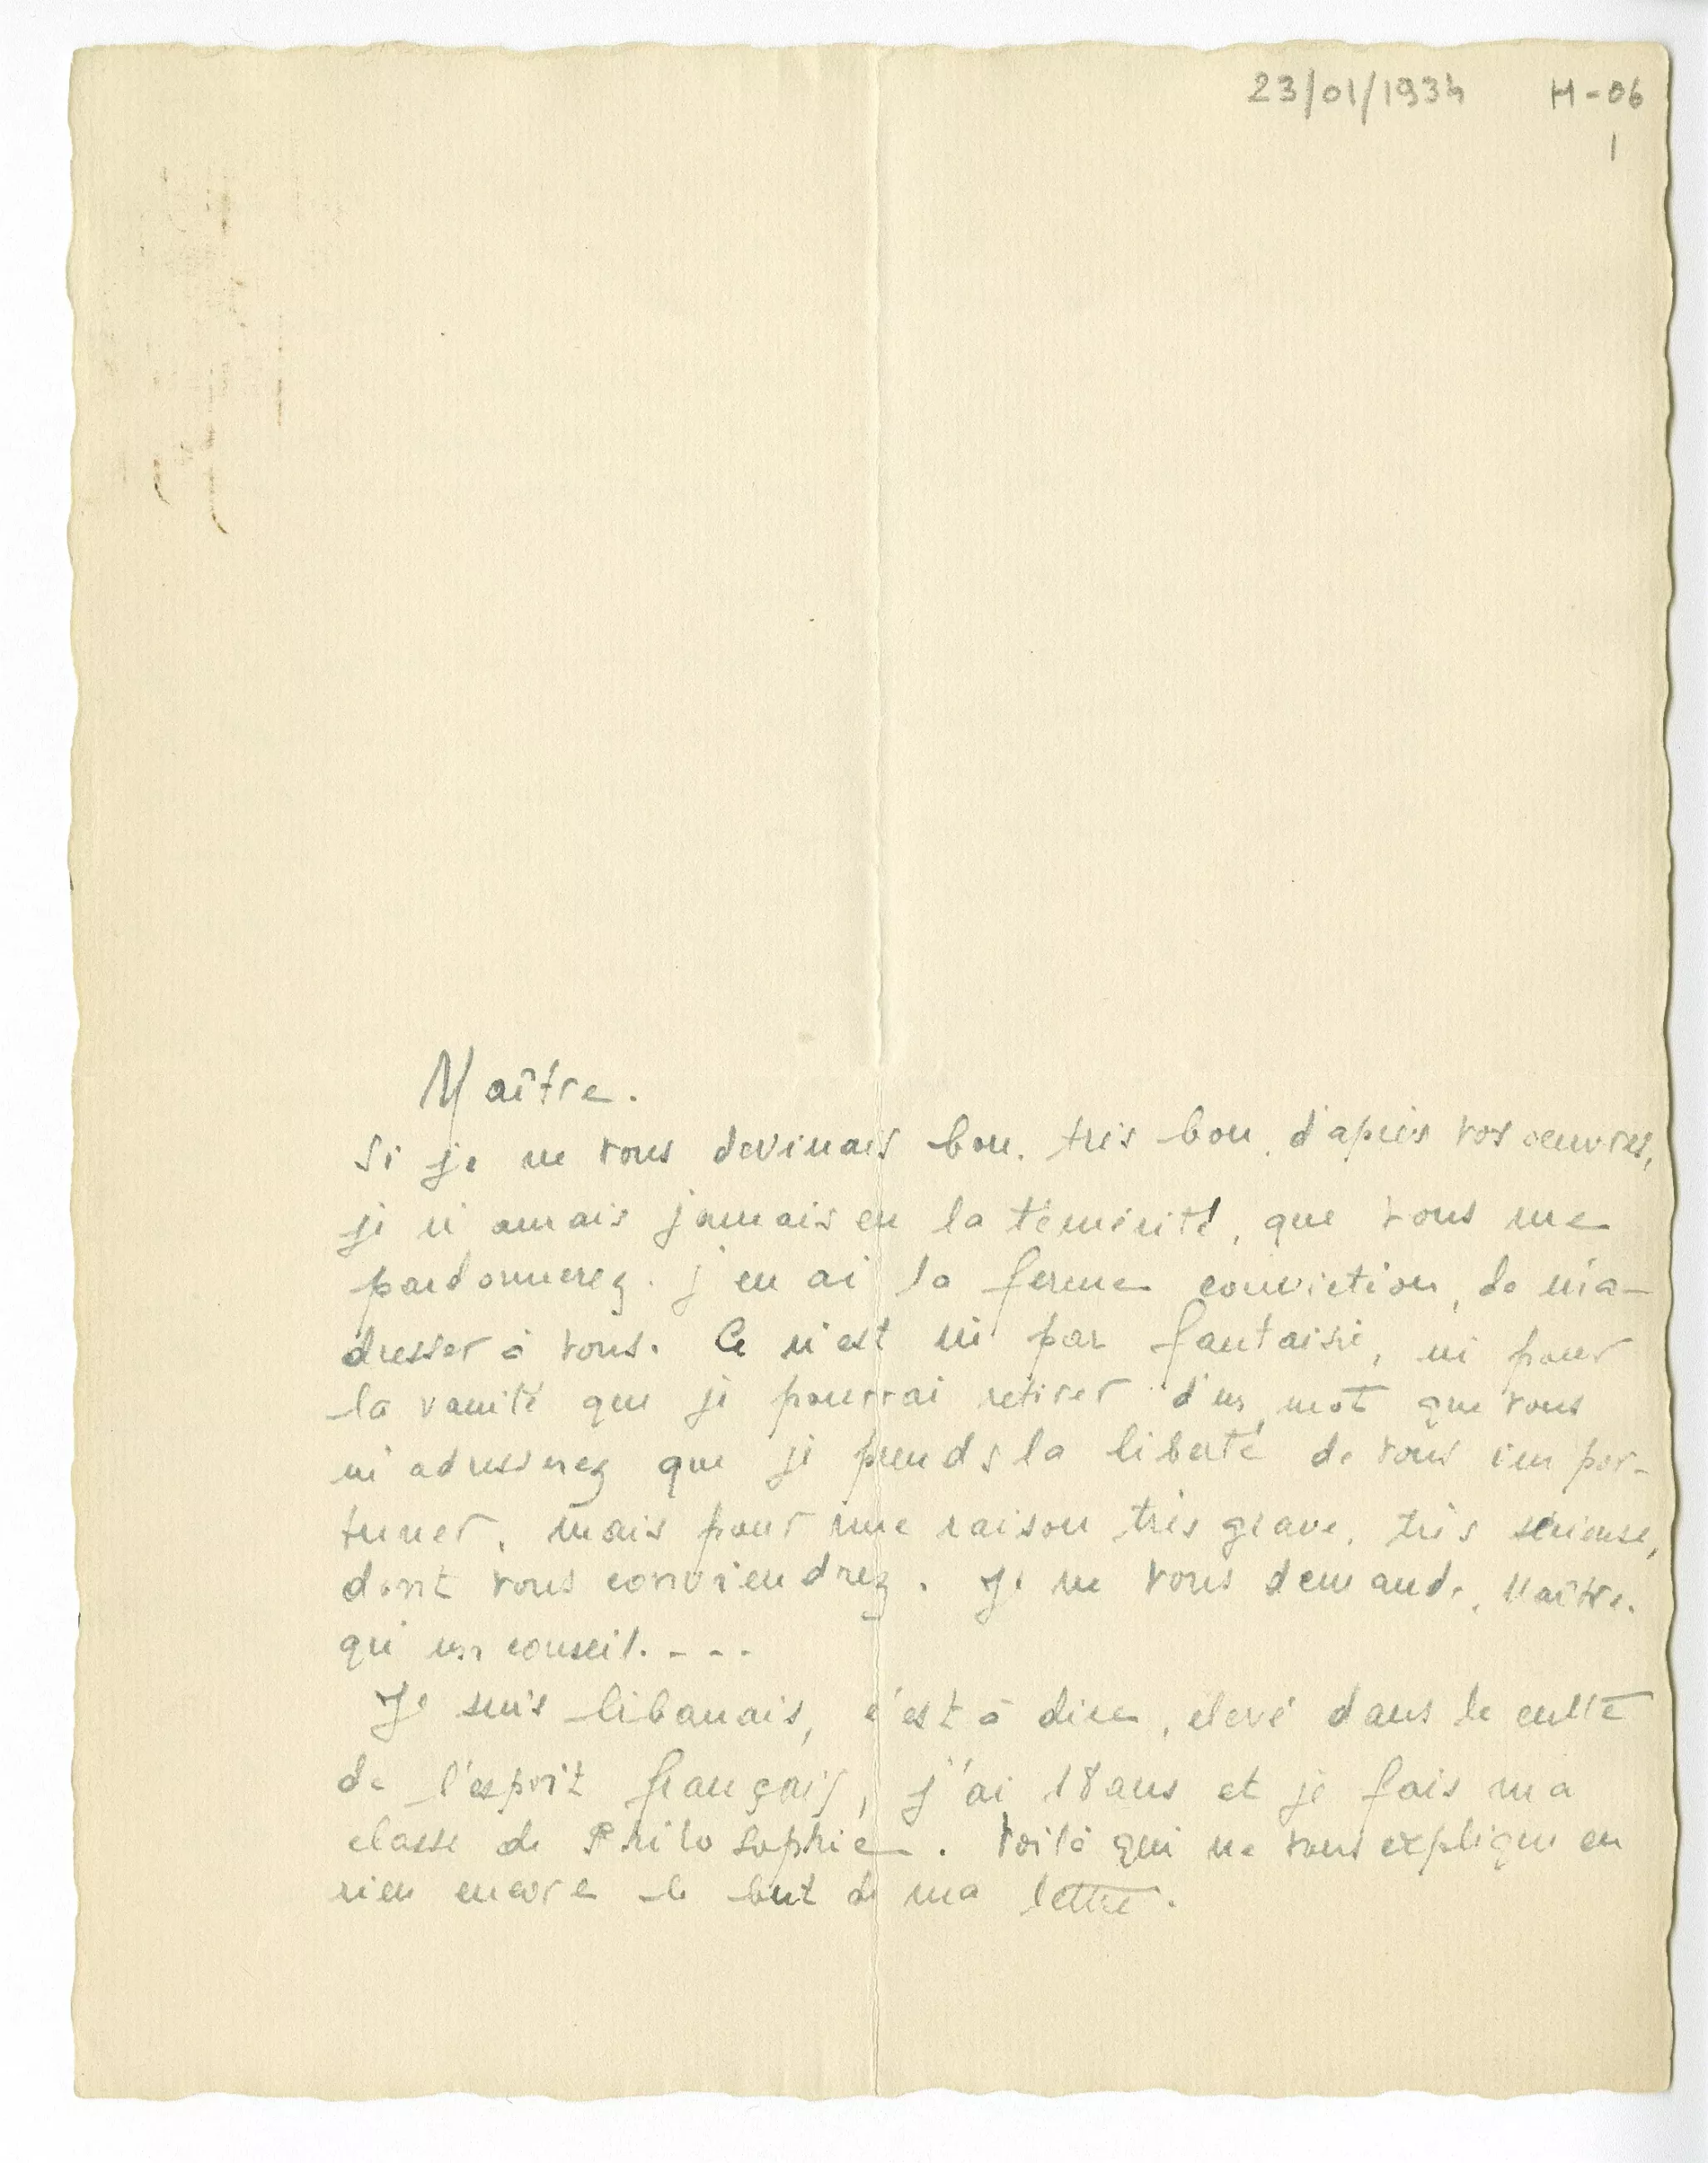 23/01/1934 H-06
1
Maître.
Si je ne vous devinais bon, très bon, d'après vos oeuvres,
je n'aurais jamais eu la témérité, que vous me
pardonnerez, j'en ai la ferme conviction, de m'a-
dresser à vous. Ce n'est ni par fantaisie, ni pour
la vanité que je pourrai retirer d'un mot que vous
m'adresserez que je prends la liberté de vous impor-
tuner, mais pour une raison très grave, très sérieuse,
dont vous conviendrez. Je ne vous demande, Maître,
qu'un conseil. - - -
Je suis libanais, c'est à dire, élevé dans le culte
de l'esprit français, j'ai 18 ans et je fais ma
classe de Philosophie. Voilà qui ne vous explique en
rien encore le but de ma lettre.